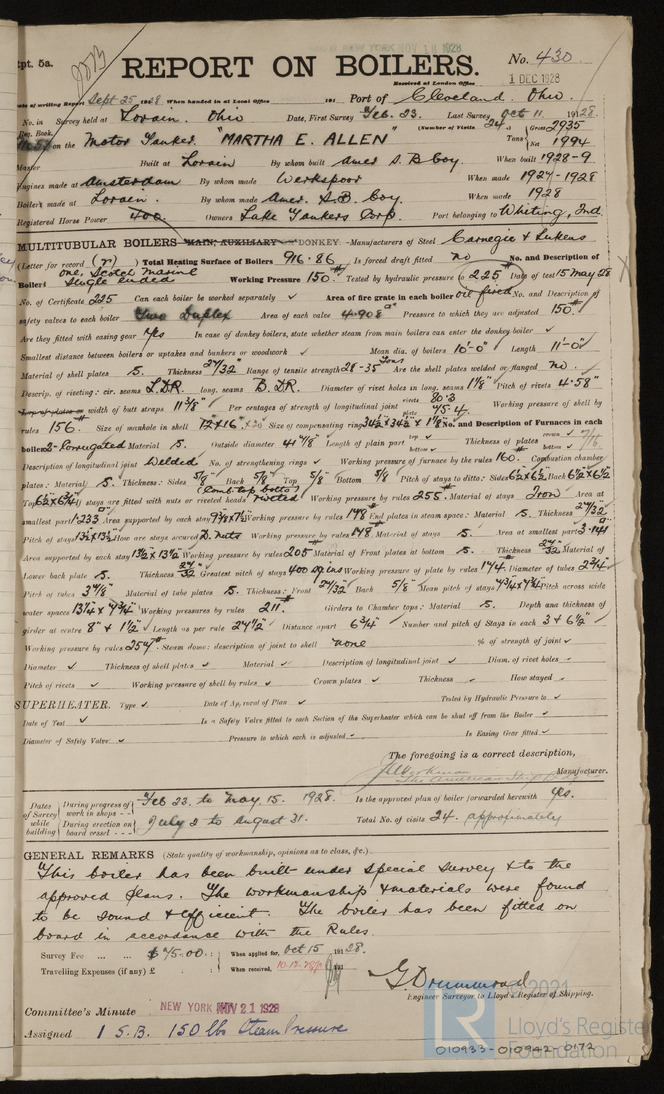 Rpt. 5a.
NEW YORK NOV 10 1928
REPORT ON BOILERS.
No. 430
Received at London Office 1 DEC 1928
Date of writing Report Sept 25 1928 When handed in at Local Office 191 Port of Cleveland. Ohio.
No. in Survey held at Lorain. Ohio Date, First Survey Feb. 23. Last Survey Oct 11. 1928.
Reg. Book. (Number of Visits 24) Gross 2935
on the Motor Tanker. "MARTHA E. ALLEN" Tons Net 1994
Master Built at Lorain By whom built Amer S. B Coy. When built 1928-9
Engines made at Amsterdam By whom made Werkspoor When made 1927-1928
Boilers made at Lorain. By whom made Amer. S.B. Coy. When made 1928
Registered Horse Power 400. Owners Lake Tankers Corp. Port belonging to Whiting, Ind.
MULTITUBULAR BOILERS MAIN, AUXILIARY DONKEY. Manufacturers of Steel Carnegie & Lukens
(Letter for record (r)) Total Heating Surface of Boilers 916.86 Is forced draft fitted no No. and Description of
Boilers one, Scotch Marine single ended Working Pressure 150# Tested by hydraulic pressure to 225 Date of test 15 May 28
No. of Certificate 225 Can each boiler be worked separately ✓ Area of fire grate in each boiler oil fired No. and Description of
safety valves to each boiler Two Duplex Area of each valve 4.908 Pressure to which they are adjusted 150#
Are they fitted with easing gear yes In case of donkey boilers, state whether steam from main boilers can enter the donkey boiler ✓
Smallest distance between boilers or uptakes and bunkers or woodwork ✓ Mean dia. of boilers 10'-0" Length 11'-0"
Material of shell plates S. Thickness 27/32" Range of tensile strength 28-35 Tons Are the shell plates welded or flanged no.
Descrip. of riveting: cir. seams L.DR. long. seams B. DR. Diameter of rivet holes in long. seams 1 1/8" Pitch of rivets 4.58"
width of butt straps 11 3/8" Per centages of strength of longitudinal joint rivets 80.3 plate 75.4. Working pressure of shell by
rules 156.# Size of manhole in shell 12" x 16" Size of compensating ring 34 1/2 x 34 1/2 x 1 1/8" No. and Description of Furnaces in each
boiler 2-Corrugated Material S. Outside diameter 41 7/8" Length of plain part top ✓ bottom ✓ Thickness of plates crown bottom 7/16
Description of longitudinal joint Welded No. of strengthening rings ✓ Working pressure of furnace by the rules 160. Combustion chamber
plates: Material S. Thickness: Sides 5/8" Back 5/8" Top 5/8" Bottom 5/8 Pitch of stays to ditto: Sides 6 1/2 x 6 1/2 Back 6 1/2 x 6 1/2
Top 6 1/2 x 6 3/4 If stays are fitted with nuts or riveted heads riveted Working pressure by rules 255.# Material of stays Iron Area at
smallest part 1.233 Area supported by each stay Working pressure by rules End plates in steam space: Material S. Thickness 27/32"
Pitch of stays 13 1/2 x 13 1/2 How are stays secured D. nuts Working pressure by rules Material of stays S. Area at smallest part
Area supported by each stay 13 1/2 x 13 1/2 Working pressure by rules 205# Material of Front plates at bottom S. Thickness 27/32" Material of
Lower back plate S. Thickness 27/32" Greatest pitch of stays Working pressure of plate by rules Diameter of tubes 2 3/4
Pitch of tubes 3 7/8" Material of tube plates S. Thickness: Front 27/32" Back 5/8" Mean pitch of stays 7 3/4 x 7 3/4 Pitch across wide
water spaces 13 1/4 x 7 3/4" Working pressures by rules 211# Girders to Chamber tops: Material S. Depth and thickness of
girder at centre 8" & 1 1/2" Length as per rule 27 1/2" Distance apart 6 3/4" Number and pitch of Stays in each 3 & 6 1/2"
Working pressure by rules 257# Steam dome: description of joint to shell none % of strength of joint ✓
Diameter ✓ Thickness of shell plates ✓ Material ✓ Description of longitudinal joint ✓ Diam. of rivet holes
Pitch of rivets ✓ Working pressure of shell by rules ✓ Crown plates ✓ Thickness ✓ How stayed ✓
SUPERHEATER. Type ✓ Date of Approval of Plan ✓ Tested by Hydraulic Pressure to ✓
Date of Test ✓ Is a Safety Valve fitted to each Section of the Superheater which can be shut off from the Boiler ✓
Diameter of Safety Valve ✓ Pressure to which each is adjusted ✓ Is Easing Gear fitted ✓
The foregoing is a correct description,
Manufacturer.
Dates of Survey while building During progress of work in shops - - Feb 23. to May 15. 1928. Is the approved plan of boiler forwarded herewith yes.
During erection on board vessel - - - July 2 to August 31. Total No. of visits 24. approximately
GENERAL REMARKS (State quality of workmanship, opinions as to class, &c.)
This boiler has been built under special survey & to the
approved plans. The workmanship & materials were found
to be sound & efficient. The boiler has been fitted on
board in accordance with the Rules.
Survey Fee ... ... $ 75.00. When applied for, Oct 15 1928.
Travelling Expenses (if any) £ When received,
G. Drummond
Engineer Surveyor to Lloyd's Register of Shipping.
Committee's Minute NEW YORK NOV 21 1928
Assigned 1 S.B. 150 lbs Steam Pressure
© 2021
Lloyd's Register
Foundation
010933-010942-0172